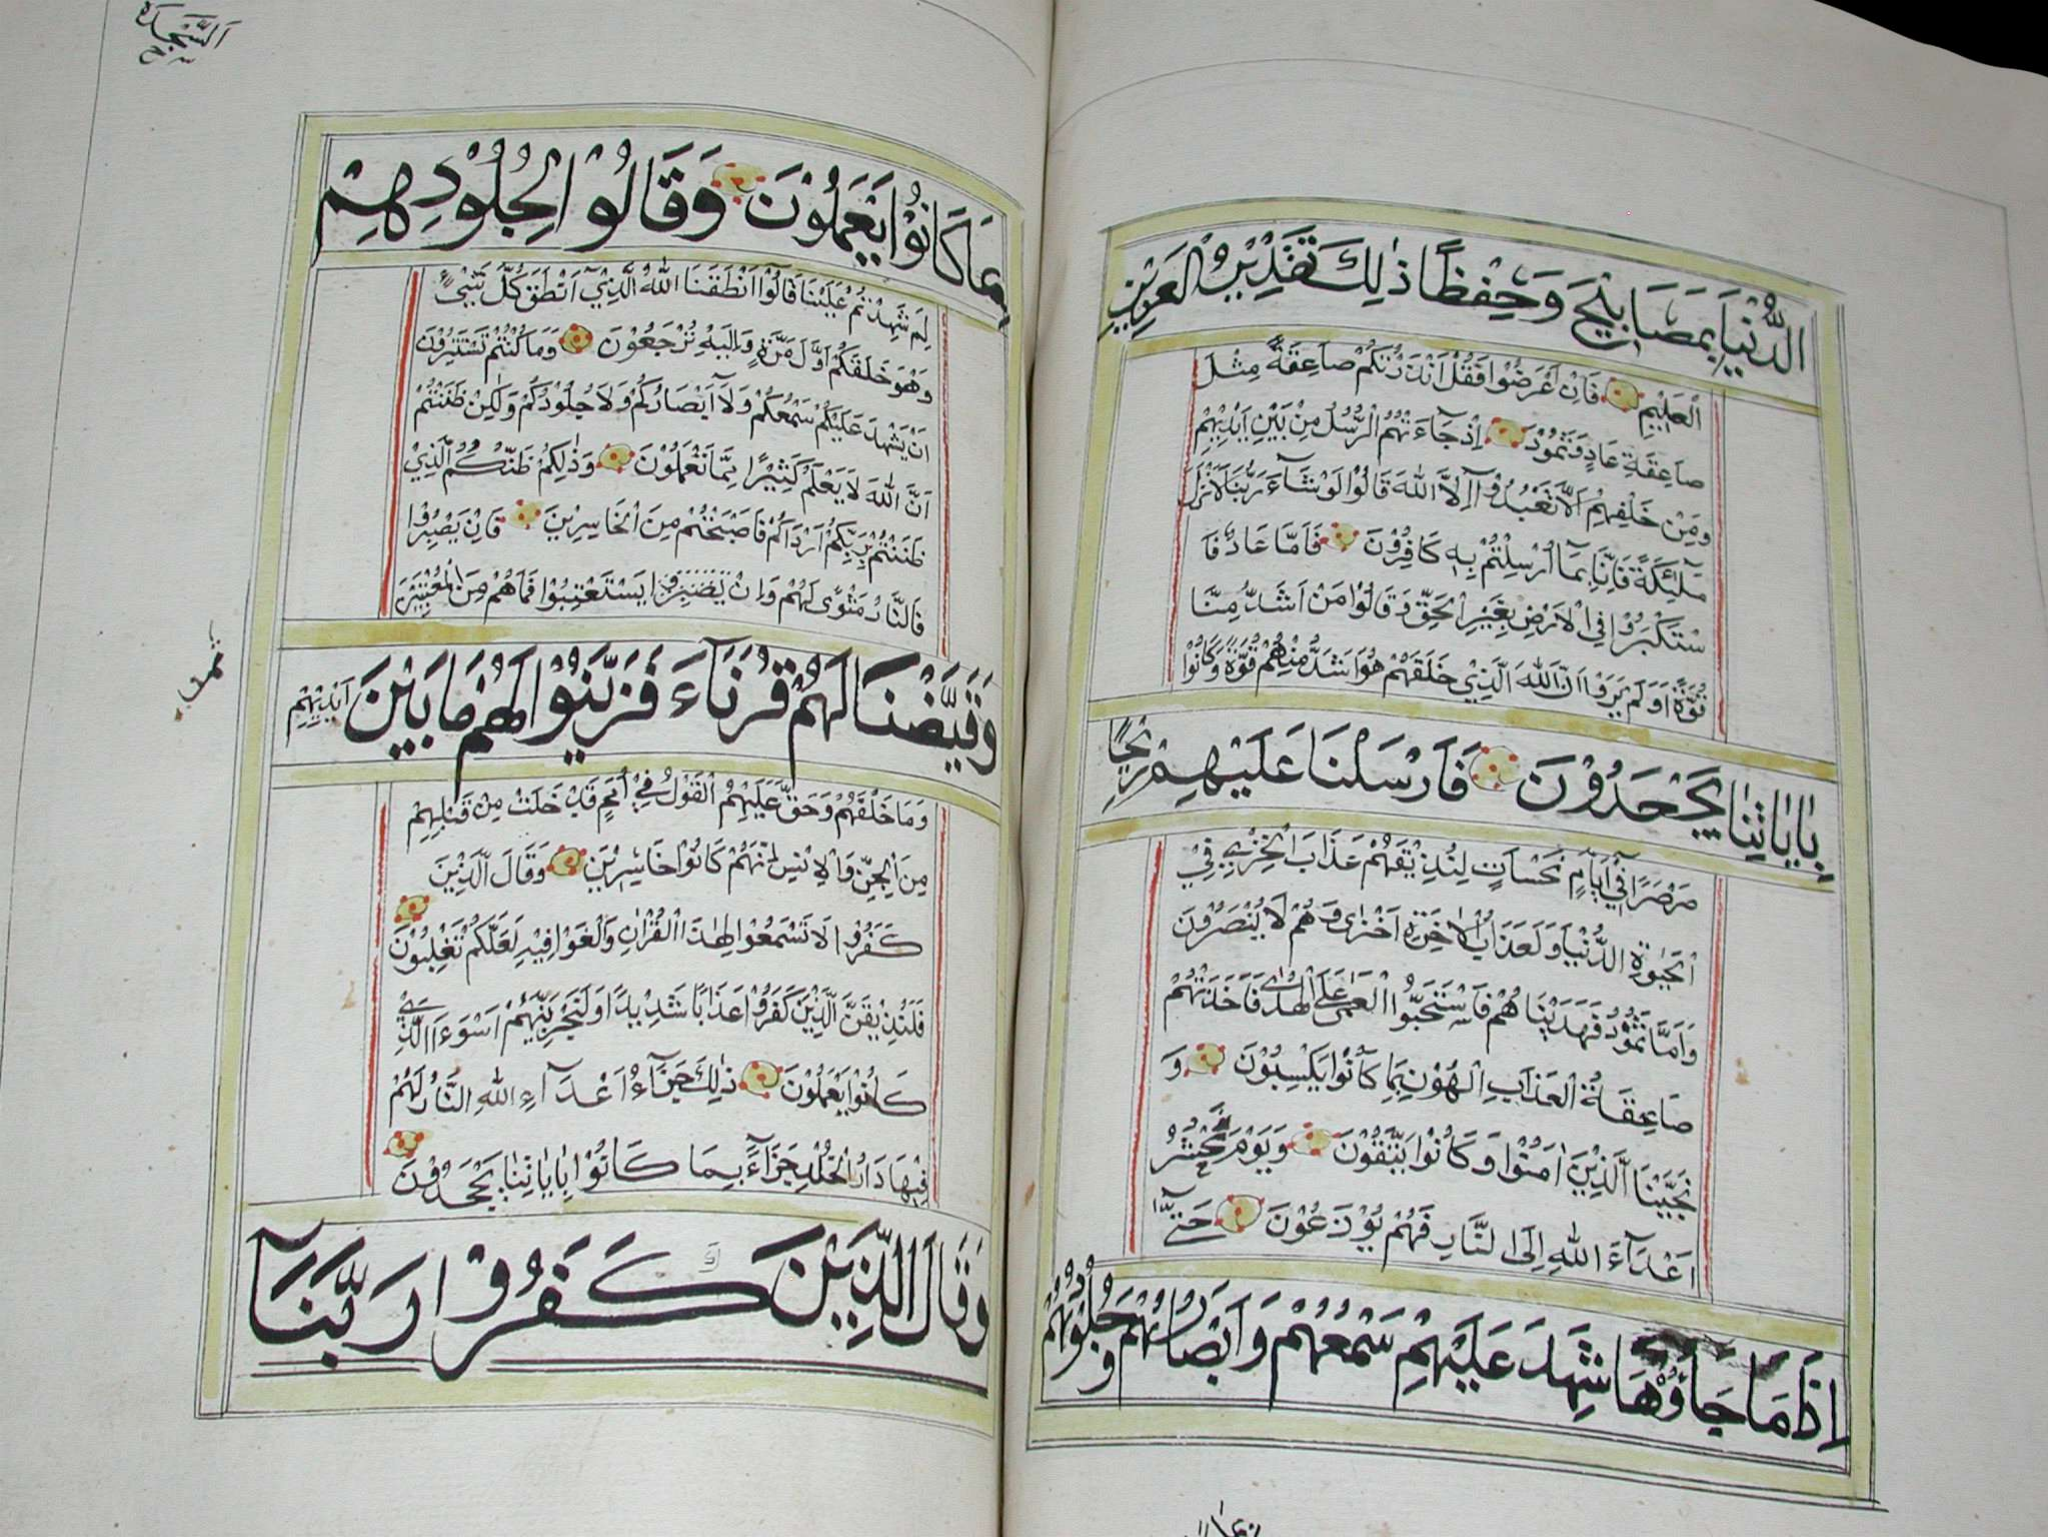 الدُّنْيَا بِمَصَابِيْحَ وَحِفْظًا ذٰلِكَ تَقْدِيْرُ الْعَزِيْزِ
الْعَلِيْمِ فَاِنْ اَعْرَضُوْا فَقُلْ اَنْذَرْتُكُمْ صَاعِقَةً مِثْلَ
صَاعِقَةِ عَادٍ وَثَمُوْدَ اِذْ جَاءَتْهُمُ الرُّسُلُ مِنْ بَيْنِ اَيْدِيْهِمْ
وَمِنْ خَلْفِهِمْ اَلَّا تَعْبُدُوْآ اِلَّا اللّٰهَ قَالُوْا لَوْ شَآءَ رَبُّنَا لَاَنْزَلَ
مَلٰٓئِكَةً فَاِنَّا بِمَآ اُرْسِلْتُمْ بِهٖ كَافِرُوْنَ فَاَمَّا عَادٌ فَا
سْتَكْبَرُوْا فِي الْاَرْضِ بِغَيْرِ الْحَقِّ وَقَالُوْا مَنْ اَشَدُّ مِنَّا
قُوَّةً اَوَلَمْ يَرَوْا اَنَّ اللّٰهَ الَّذِيْ خَلَقَهُمْ هُوَ اَشَدُّ مِنْهُمْ قُوَّةً وَكَانُوْا
بِاٰيَاتِنَا يَجْحَدُوْنَ فَاَرْسَلْنَا عَلَيْهِمْ رِيْحًا
صَرْصَرًا فِيْٓ اَيَّامٍ نَحِسَاتٍ لِنُذِيْقَهُمْ عَذَابَ الْخِزْيِ فِي
الْحَيٰوةِ الدُّنْيَا وَلَعَذَابُ الْاٰخِرَةِ اَخْزٰى وَهُمْ لَا يُنْصَرُوْنَ
وَاَمَّا ثَمُوْدُ فَهَدَيْنَاهُمْ فَاسْتَحَبُّوا الْعَمٰى عَلَى الْهُدٰى فَاَخَذَتْهُمْ
صَاعِقَةُ الْعَذَابِ الْهُوْنِ بِمَا كَانُوْا يَكْسِبُوْنَ وَ
نَجَّيْنَا الَّذِيْنَ اٰمَنُوْا وَكَانُوْا يَتَّقُوْنَ وَيَوْمَ يُحْشَرُ
اَعْدَآءُ اللّٰهِ اِلَى النَّارِ فَهُمْ يُوْزَعُوْنَ حَتّٰٓى
اِذَا مَا جَاؤُهَا شَهِدَ عَلَيْهِمْ سَمْعُهُمْ وَاَبْصَارُهُمْ وَجُلُوْدُهُمْ
السَّجْدَة
بِمَا كَانُوْا يَعْمَلُوْنَ وَقَالُوْا لِجُلُوْدِهِمْ
لِمَ شَهِدْتُمْ عَلَيْنَا قَالُوْآ اَنْطَقَنَا اللّٰهُ الَّذِيْٓ اَنْطَقَ كُلَّ شَيْءٍ
وَهُوَ خَلَقَكُمْ اَوَّلَ مَرَّةٍ وَاِلَيْهِ تُرْجَعُوْنَ وَمَا كُنْتُمْ تَسْتَتِرُوْنَ
اَنْ يَشْهَدَ عَلَيْكُمْ سَمْعُكُمْ وَلَآ اَبْصَارُكُمْ وَلَا جُلُوْدُكُمْ وَلٰكِنْ ظَنَنْتُمْ
اَنَّ اللّٰهَ لَا يَعْلَمُ كَثِيْرًا مِمَّا تَعْمَلُوْنَ وَذٰلِكُمْ ظَنُّكُمُ الَّذِيْ
ظَنَنْتُمْ بِرَبِّكُمْ اَرْدَاكُمْ فَاَصْبَحْتُمْ مِنَ الْخَاسِرِيْنَ فَاِنْ يَصْبِرُوْا
فَالنَّارُ مَثْوًى لَهُمْ وَاِنْ يَصْبِرُوْا يَسْتَعْتِبُوْا فَمَا هُمْ مِنَ الْمُعْتَبِيْنَ
وَقَيَّضْنَا لَهُمْ قُرَنَآءَ فَزَيَّنُوْا لَهُمْ مَا بَيْنَ اَيْدِيْهِمْ
وَمَا خَلْفَهُمْ وَحَقَّ عَلَيْهِمُ الْقَوْلُ فِيْٓ اُمَمٍ قَدْ خَلَتْ مِنْ قَبْلِهِمْ
مِنَ الْجِنِّ وَالْاِنْسِ اِنَّهُمْ كَانُوْا خَاسِرِيْنَ وَقَالَ الَّذِيْنَ
كَفَرُوْا لَا تَسْمَعُوْا لِهٰذَا الْقُرْاٰنِ وَالْغَوْا فِيْهِ لَعَلَّكُمْ تَغْلِبُوْنَ
فَلَنُذِيْقَنَّ الَّذِيْنَ كَفَرُوْا عَذَابًا شَدِيْدًا وَلَنَجْزِيَنَّهُمْ اَسْوَءَ الَّذِيْ
كَانُوْا يَعْمَلُوْنَ ذٰلِكَ جَزَآءُ اَعْدَآءِ اللّٰهِ النَّارُ لَهُمْ
فِيْهَا دَارُ الْخُلْدِ جَزَآءً بِمَا كَانُوْا بِاٰيَاتِنَا يَجْحَدُوْنَ
وَقَالَ الَّذِيْنَ كَفَرُوْا رَبَّنَآ